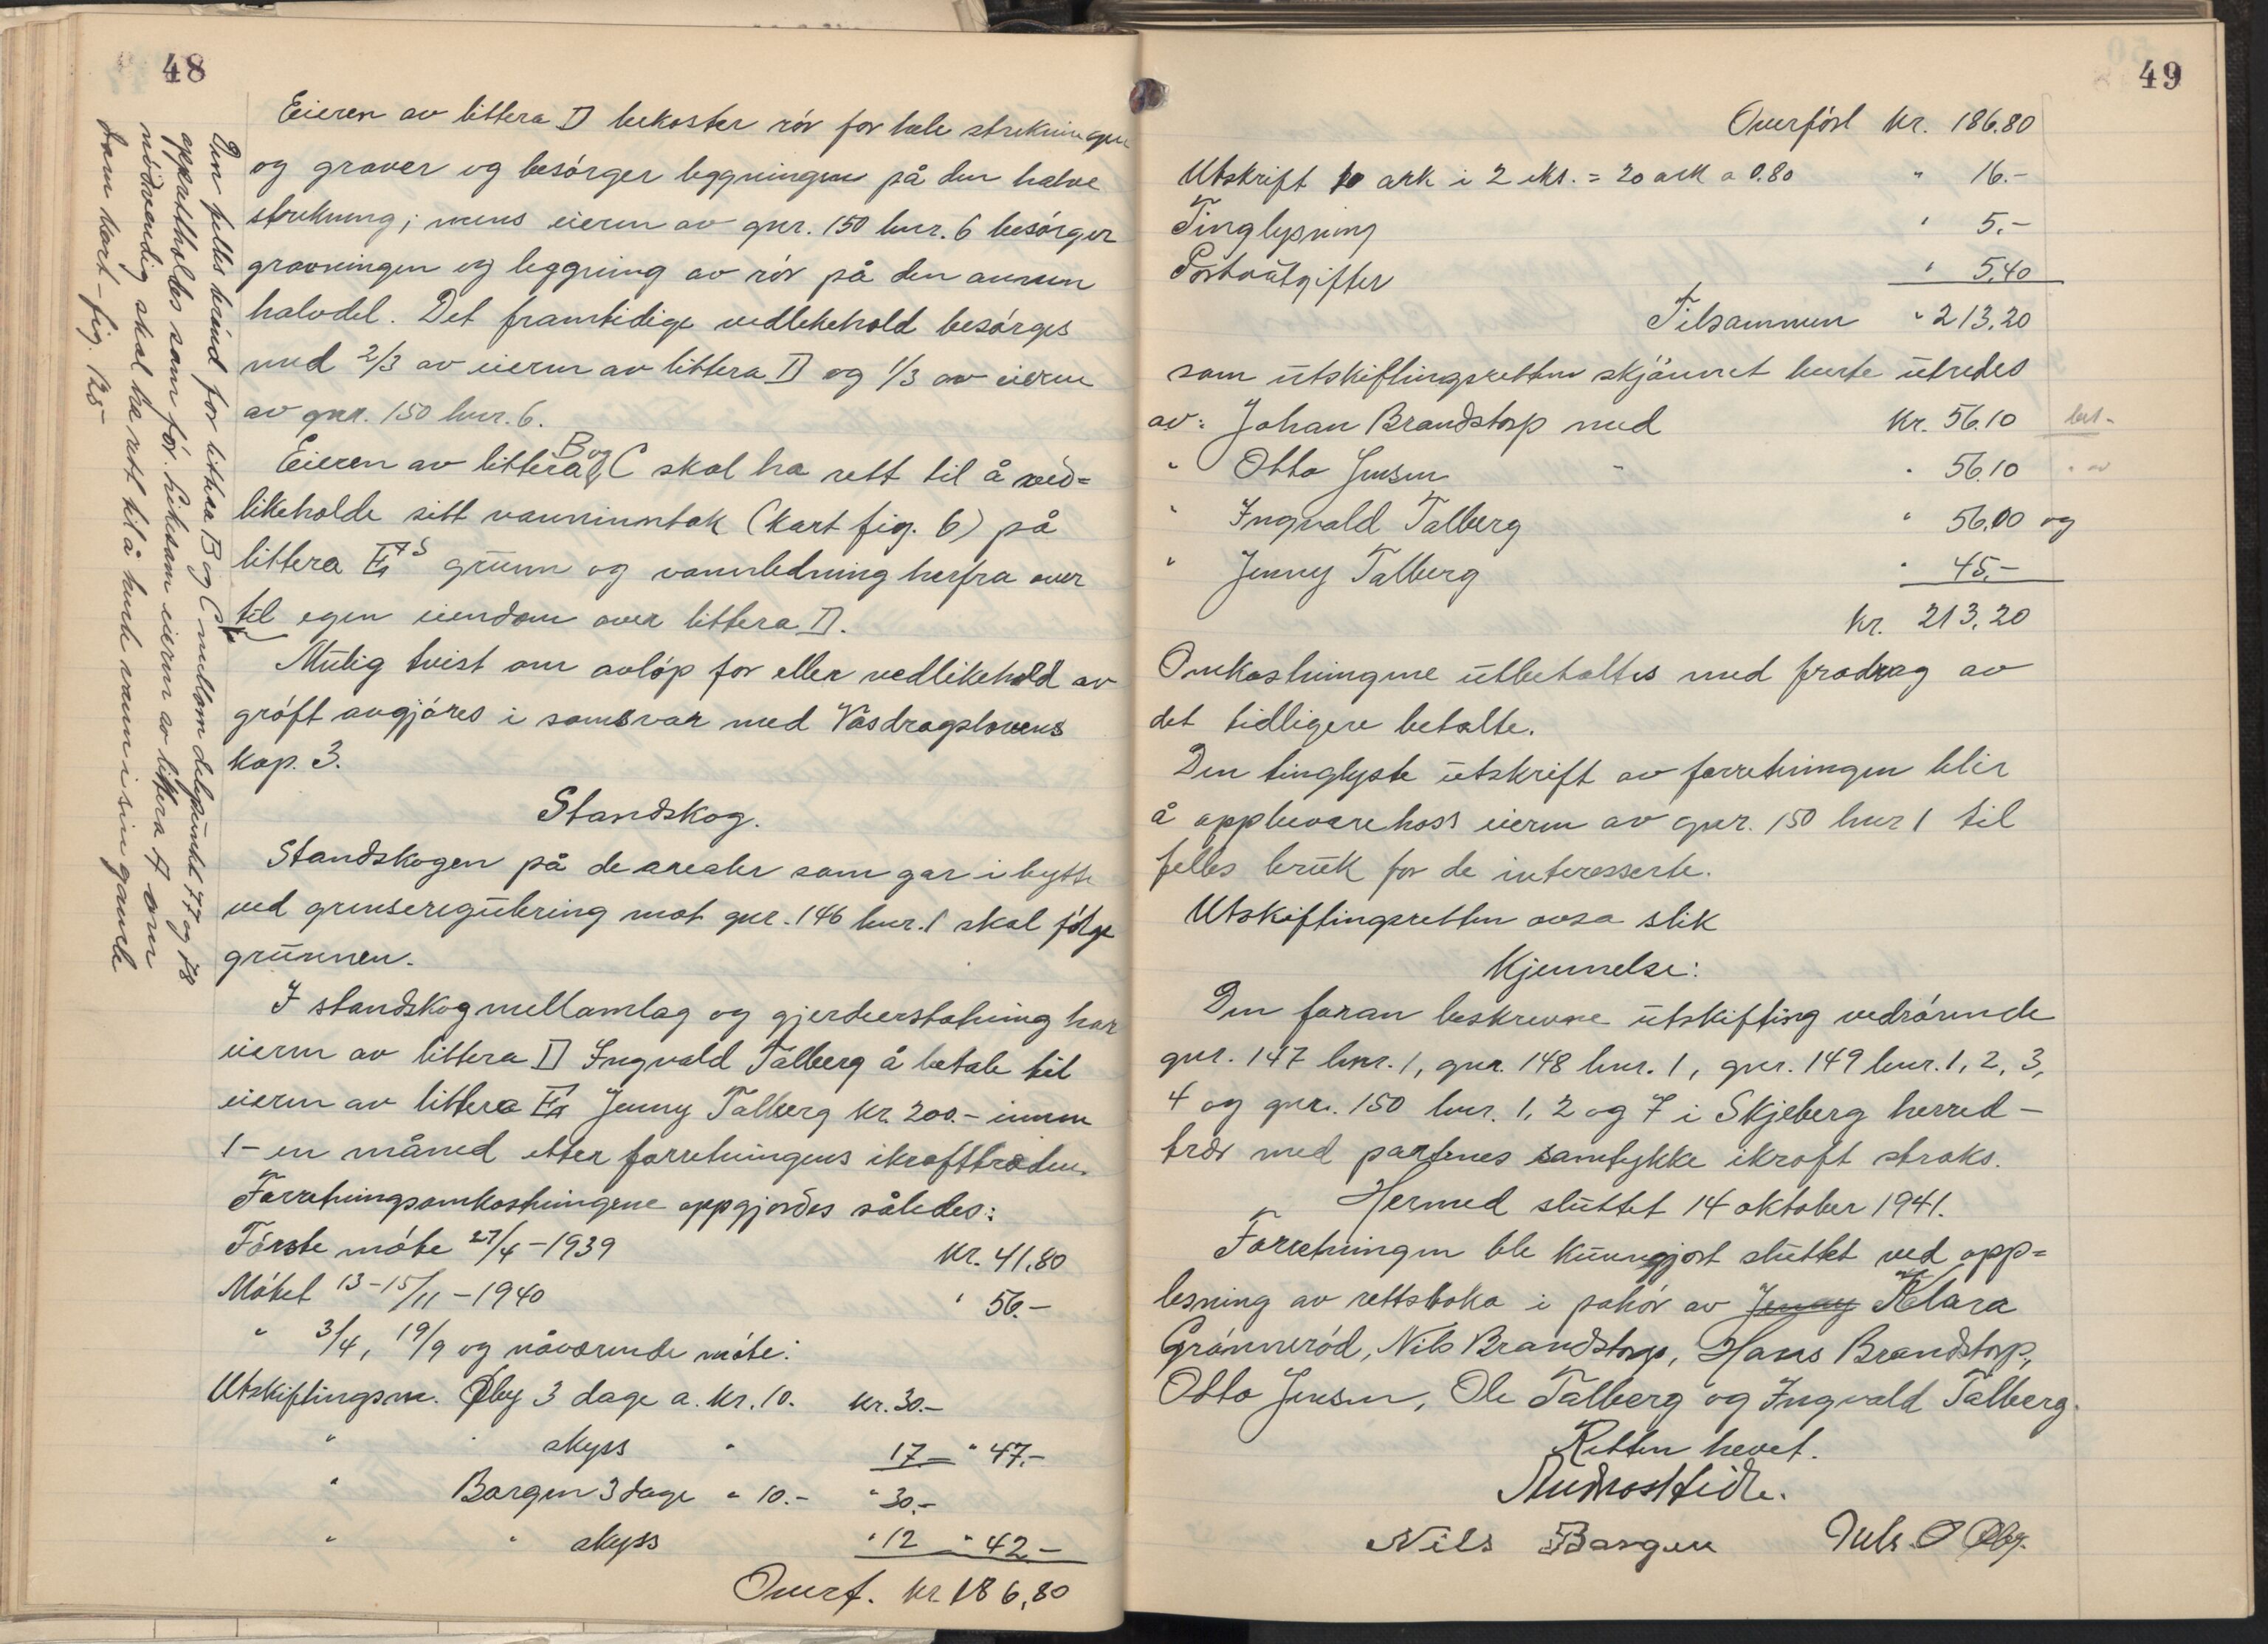 48
Eieren av littera D bekoster rör for hele strekningen
og graver og besörger leggningen på den halve
strekning; mens eieren av gnr. 150 bnr. 6 besörger
gravningen og leggning av rör på den annen
halvdel. Det framtidige vedlikehold besörges
med 2/3 av eieren av littera D og 1/3 av eieren
av gnr. 150 bnr. 6.
Eieren av littera B og C skal ha rett til å ved=
likeholde sitt vanninntak (kart fig. 6) på
littera grunn og vannledning herfra over
til egen eiendom over littera D.
Mulig tvist om avlöp for eller vedlikehold av
gröft avgjöres i samsvar med Vasdragslovens
kap. 3.
Standskog.
Standskogen på de arealer som gar i bytte
ved grenseregulering mot gnr. 146 bnr. 1 skal fölge
grunnen.
I standskogmellomlag og gjerdeerstatning har
eieren av littera D Ingvald Talberg å betale til
eieren av littera Jenny Talberg kr. 200.- innen
1- en måned etter forretningens ikrafttreden.
Forretningsomkostningene oppgjordes således:
Förste möte 27/4-1939 kr. 41,80
Mötet 13-15/11-1940 " 56.-
" 3/4, 19/9 og nåværende möte:
Utskiftingsm. Øby 3 dage a. kr. 10. kr. 30.-
" " skyss " 17.- " 47.-
" Borgen 3 dage " 10.- " 30.-
" " skyss " 12 " 42.-
Overf. kr 186,80
Den felles brönd for littera B og C mellom delepunkt 77 og 78
opprettholdes som för. Liksom eieren av littera A om
nödvendig skal ha rett til å hente vann i sin gamle
dam kart-fig. 125-
49
Overfört kr. 186.80
Utskrift 10 ark i 2 eks. = 20 ark a 0.80 " 16.-
Tinglysning " 5.-
Portoutgifter " 5,40
Tilsammen " 213,20
som utskiftingsretten skjönnet burte utredes
av: Johan Brandstorp med kr. 56.10 bet.
" Otto Jensen " " 56.10
" Ingvald Talberg " 56.00 og
" Jenny Talberg " 45.-
kr. 213,20
Omkostningene utbetaltes med fradrag av
det tidligere betalte.
Den tinglyste utskrift av forretningen blir
å oppbevare hoss eieren av gnr. 150 bnr 1 til
felles bruk for de interesserte.
Utskiftingsretten avsa slik
Kjennelse:
Den foran beskrevne utskifting vedrörende
gnr. 147 bnr. 1, gnr. 148 bnr. 1, gnr. 149 bnr. 1, 2, 3,
4 og gnr. 150 bnr. 1, 2 og 7 i Skjeberg herred -
trær med partenes samtykke ikraft straks.
Hermed sluttet 14 oktober 1941.
Forretningen ble kunngjort sluttet ved opp=
lesning av rettsboka i påhör av Jenny Klara
Grönneröd, Nils Brandstorp, Hans Brandstorp,
Otto Jensen, Ole Talberg og Ingvald Talberg.
Retten hevet.
Nils Borgen Øby.